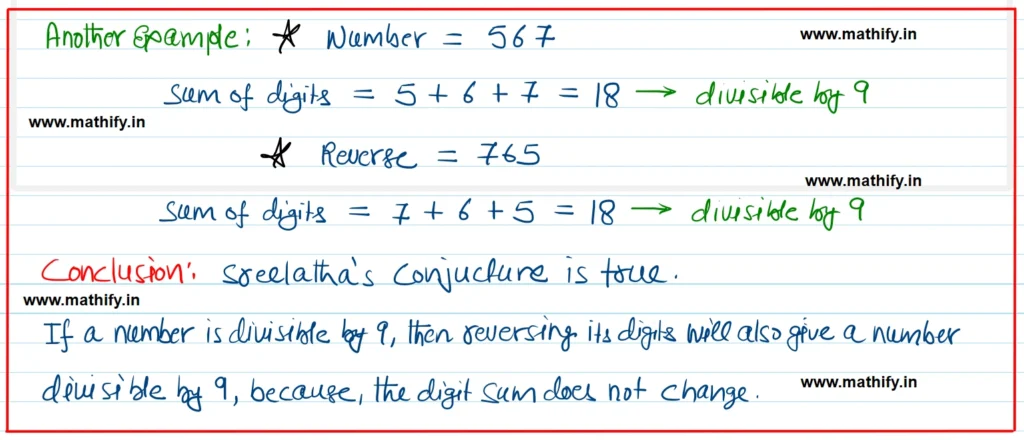 Another Example: ★ Number = 567 www.mathify.in
Sum of digits = 5 + 6 + 7 = 18 → divisible by 9
www.mathify.in
★ Reverse = 765
www.mathify.in
Sum of digits = 7 + 6 + 5 = 18 → divisible by 9
Conclusion: Sreelatha's Conjucture is true.
www.mathify.in
If a number is divisible by 9, then reversing its digits will also give a number
divisible by 9, because, the digit sum does not change. www.mathify.in